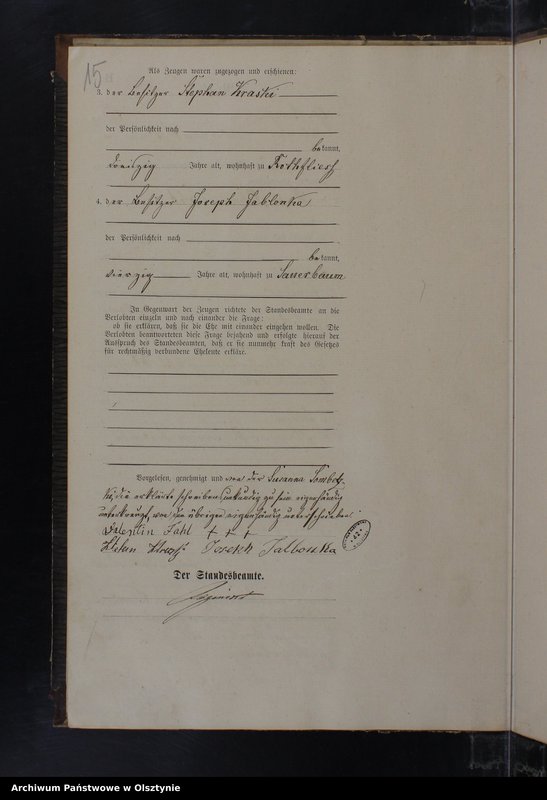 15
Als Zeugen waren zugezogen und erschienen:
3. der Besitzer Stephan Kraski
der Persönlichkeit nach
bekannt,
dreißig Jahre alt, wohnhaft zu Rothfließ
4. der Besitzer Joseph Jablonka
der Persönlichkeit nach
bekannt,
vierzig Jahre alt, wohnhaft zu Sauerbaum
In Gegenwart der Zeugen richtete der Standesbeamte an die
Verlobten einzeln und nach einander die Frage:
ob sie erklären, daß sie die Ehe mit einander eingehen wollen. Die
Verlobten beantworteten diese Frage bejahend und erfolgte hierauf der
Ausspruch des Standesbeamten, daß er sie nunmehr kraft des Gesetzes
für rechtmäßig verbundene Eheleute erkläre.
Vorgelesen, genehmigt und von der Susanna
die erklärte schreibensunkundig zu sein eigenhändig
unterkreuzt, von den übrigen eigenhändig unterschrieben.
Valentin Fahl + + +
Joseph Jalbonka
Der Standesbeamte.
Archiwum Państwowe w Olsztynie